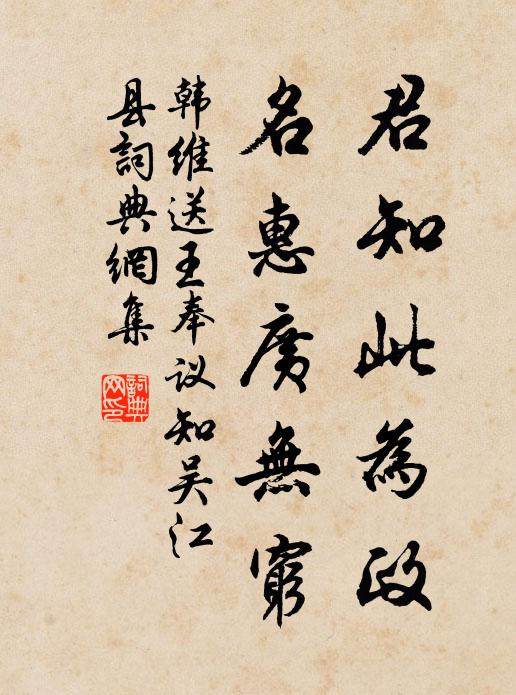 君知此為政
名惠廣無窮
韩維送王奉议知吴江
县詞典網集
詞典
网印